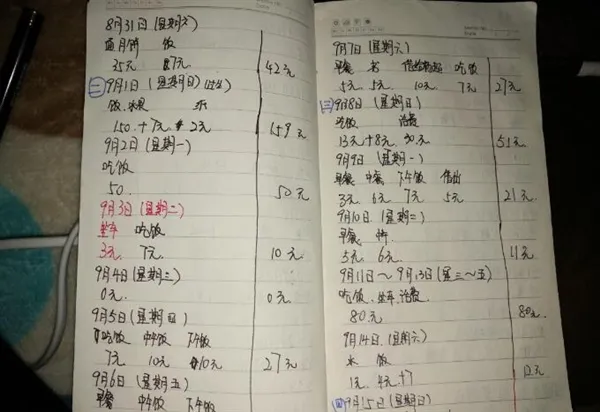 8月31日(星期六)
面月饼 饭
35元 7元 42元
(二)9月1日(星期日)
饭
150 + 7元 2元 159元
9月2日(星期一)
吃饭
50 50元
9月3日(星期二)
坐车 吃饭
3元 7元 10元
9月4日(星期三)
0元 0元
9月5日(星期四)
吃饭 中午饭 下午饭
7元 10元 10元 27元
9月6日(星期五)
早餐 中午饭 下午饭
9月7日(星期六)
早餐 吃饭
5元 5元 10元 7元 27元
(三)9月8日(星期日)
吃饭 话费
13元+8元 30元 51元
9月9日(星期一)
早餐 中餐 下午饭 借出
3元 6元 7元 5元 21元
9月10日(星期二)
早餐
5元 6元 11元
9月11日~9月13日(星三~五)
吃饭.坐车.话费
80元 80元
9月14日(星期六)
水 饭
1元 4元+7 12元
(四)9月15日(星期日)